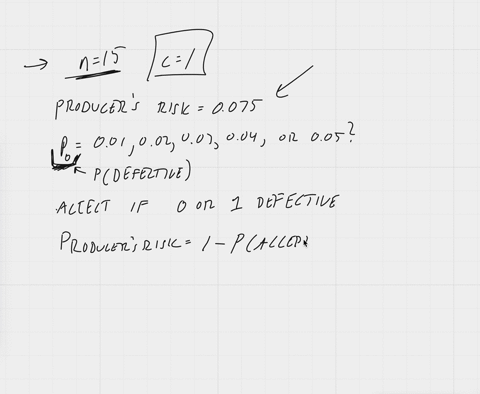 → n=15 c=1
PRODUCER'S RISK = 0.075
P₀ = 0.01, 0.02, 0.03, 0.04, OR 0.05?
P(DEFECTIVE)
ACCEPT IF 0 OR 1 DEFECTIVE
PRODUCER'S RISK = 1 - P(ACCEP